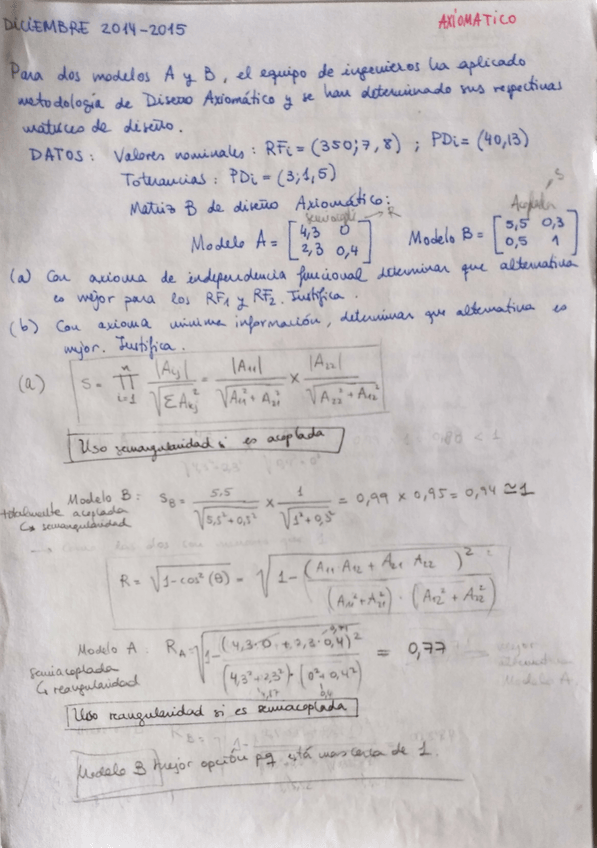 DICIEMBRE 2014-2015
AXIOMATICO
Para dos modelos A y B, el equipo de ingenieros ha aplicado
metodología de Diseño Axiomático y se han determinado sus respectivas
matrices de diseño.
DATOS: Valores nominales: RFi = (350; 7, 8) ; PDi = (40, 13)
Tolerancias: PDi = (3; 1, 5)
Matriz B de diseño Axiomático:
→ R
Acoplada → S
Modelo A = [4,3 0
2,3 0,4]
Modelo B = [5,5 0,3
0,5 1]
(a) Con axioma de independencia funcional determinar que alternativa
es mejor para los RF1 y RF2. Justifica.
(b) Con axioma minima información, determinar que alternativa es
mejor. Justifica.
(a) S = ∏ i=1 n |Aij| / √ΣAkj² = |A11| / √A11² + A21² × |A22| / √A22² + A12²
Uso semangularidad si es acoplada
Modelo B: SB = 5,5 / √5,5² + 0,5² × 1 / √1² + 0,5² = 0,99 × 0,95 = 0,94 ≅ 1
totalmente acoplada
↳ semangularidad
R = √1 - cos²(θ) = √1 - (A11 A12 + A21 A22)² / (A11² + A21²) · (A12² + A22²)
Modelo A: RA = √1 - (4,3·0 + 2,3·0,4)² / (4,3² + 2,3²) · (0² + 0,4²) = 0,77
semiacoplada
↳ reangularidad
mejor
alternativa
Modelo A
Uso reangularidad si es semiacoplada
Modelo B mejor opción pq está mas cerca de 1.